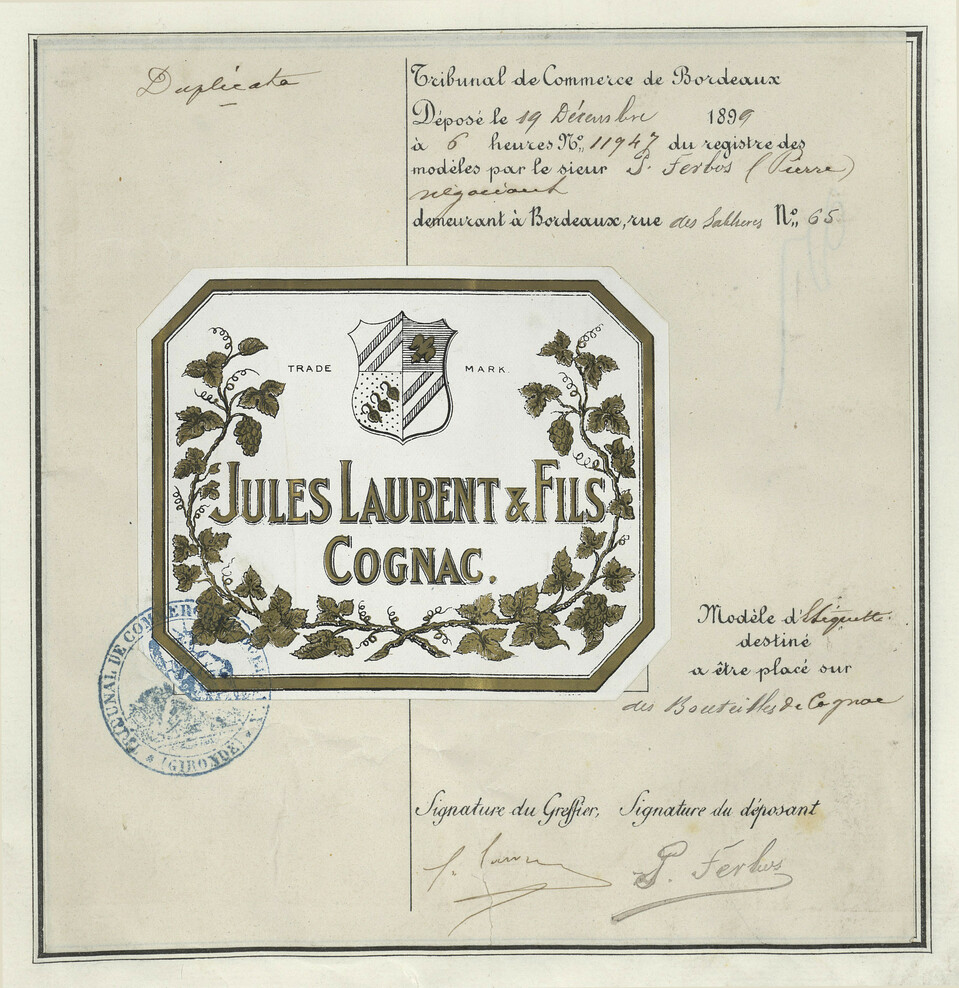 Duplicata
Tribunal de Commerce de Bordeaux
Déposé le 19 Décembre 1899
à 6 heures No. 11947 du registre des
modèles par le sieur P. Ferbos (Pierre)
négociant
demeurant à Bordeaux, rue des Sablières No. 65
TRADE MARK.
JULES LAURENT & FILS
COGNAC.
Modèle d'Etiquette
destiné
a être placé sur
des Bouteilles de Cognac
TRIBUNAL DE COMMERCE
(GIRONDE)
Signature du Greffier, Signature du déposant
P. Ferbos